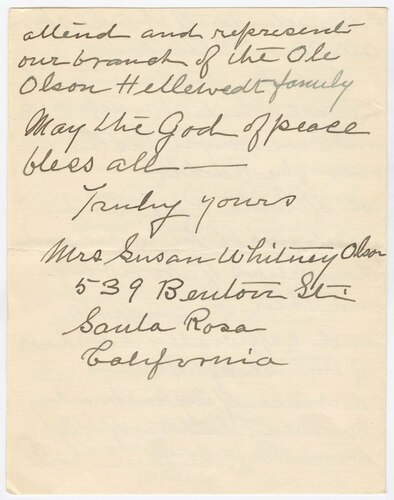 attend and represent
our branch of the Ole
Olson Hettewedt family
May the God of peace
bless all —
Truly yours
Mrs Susan Whitney Olson
539 Benton St.
Santa Rosa
California